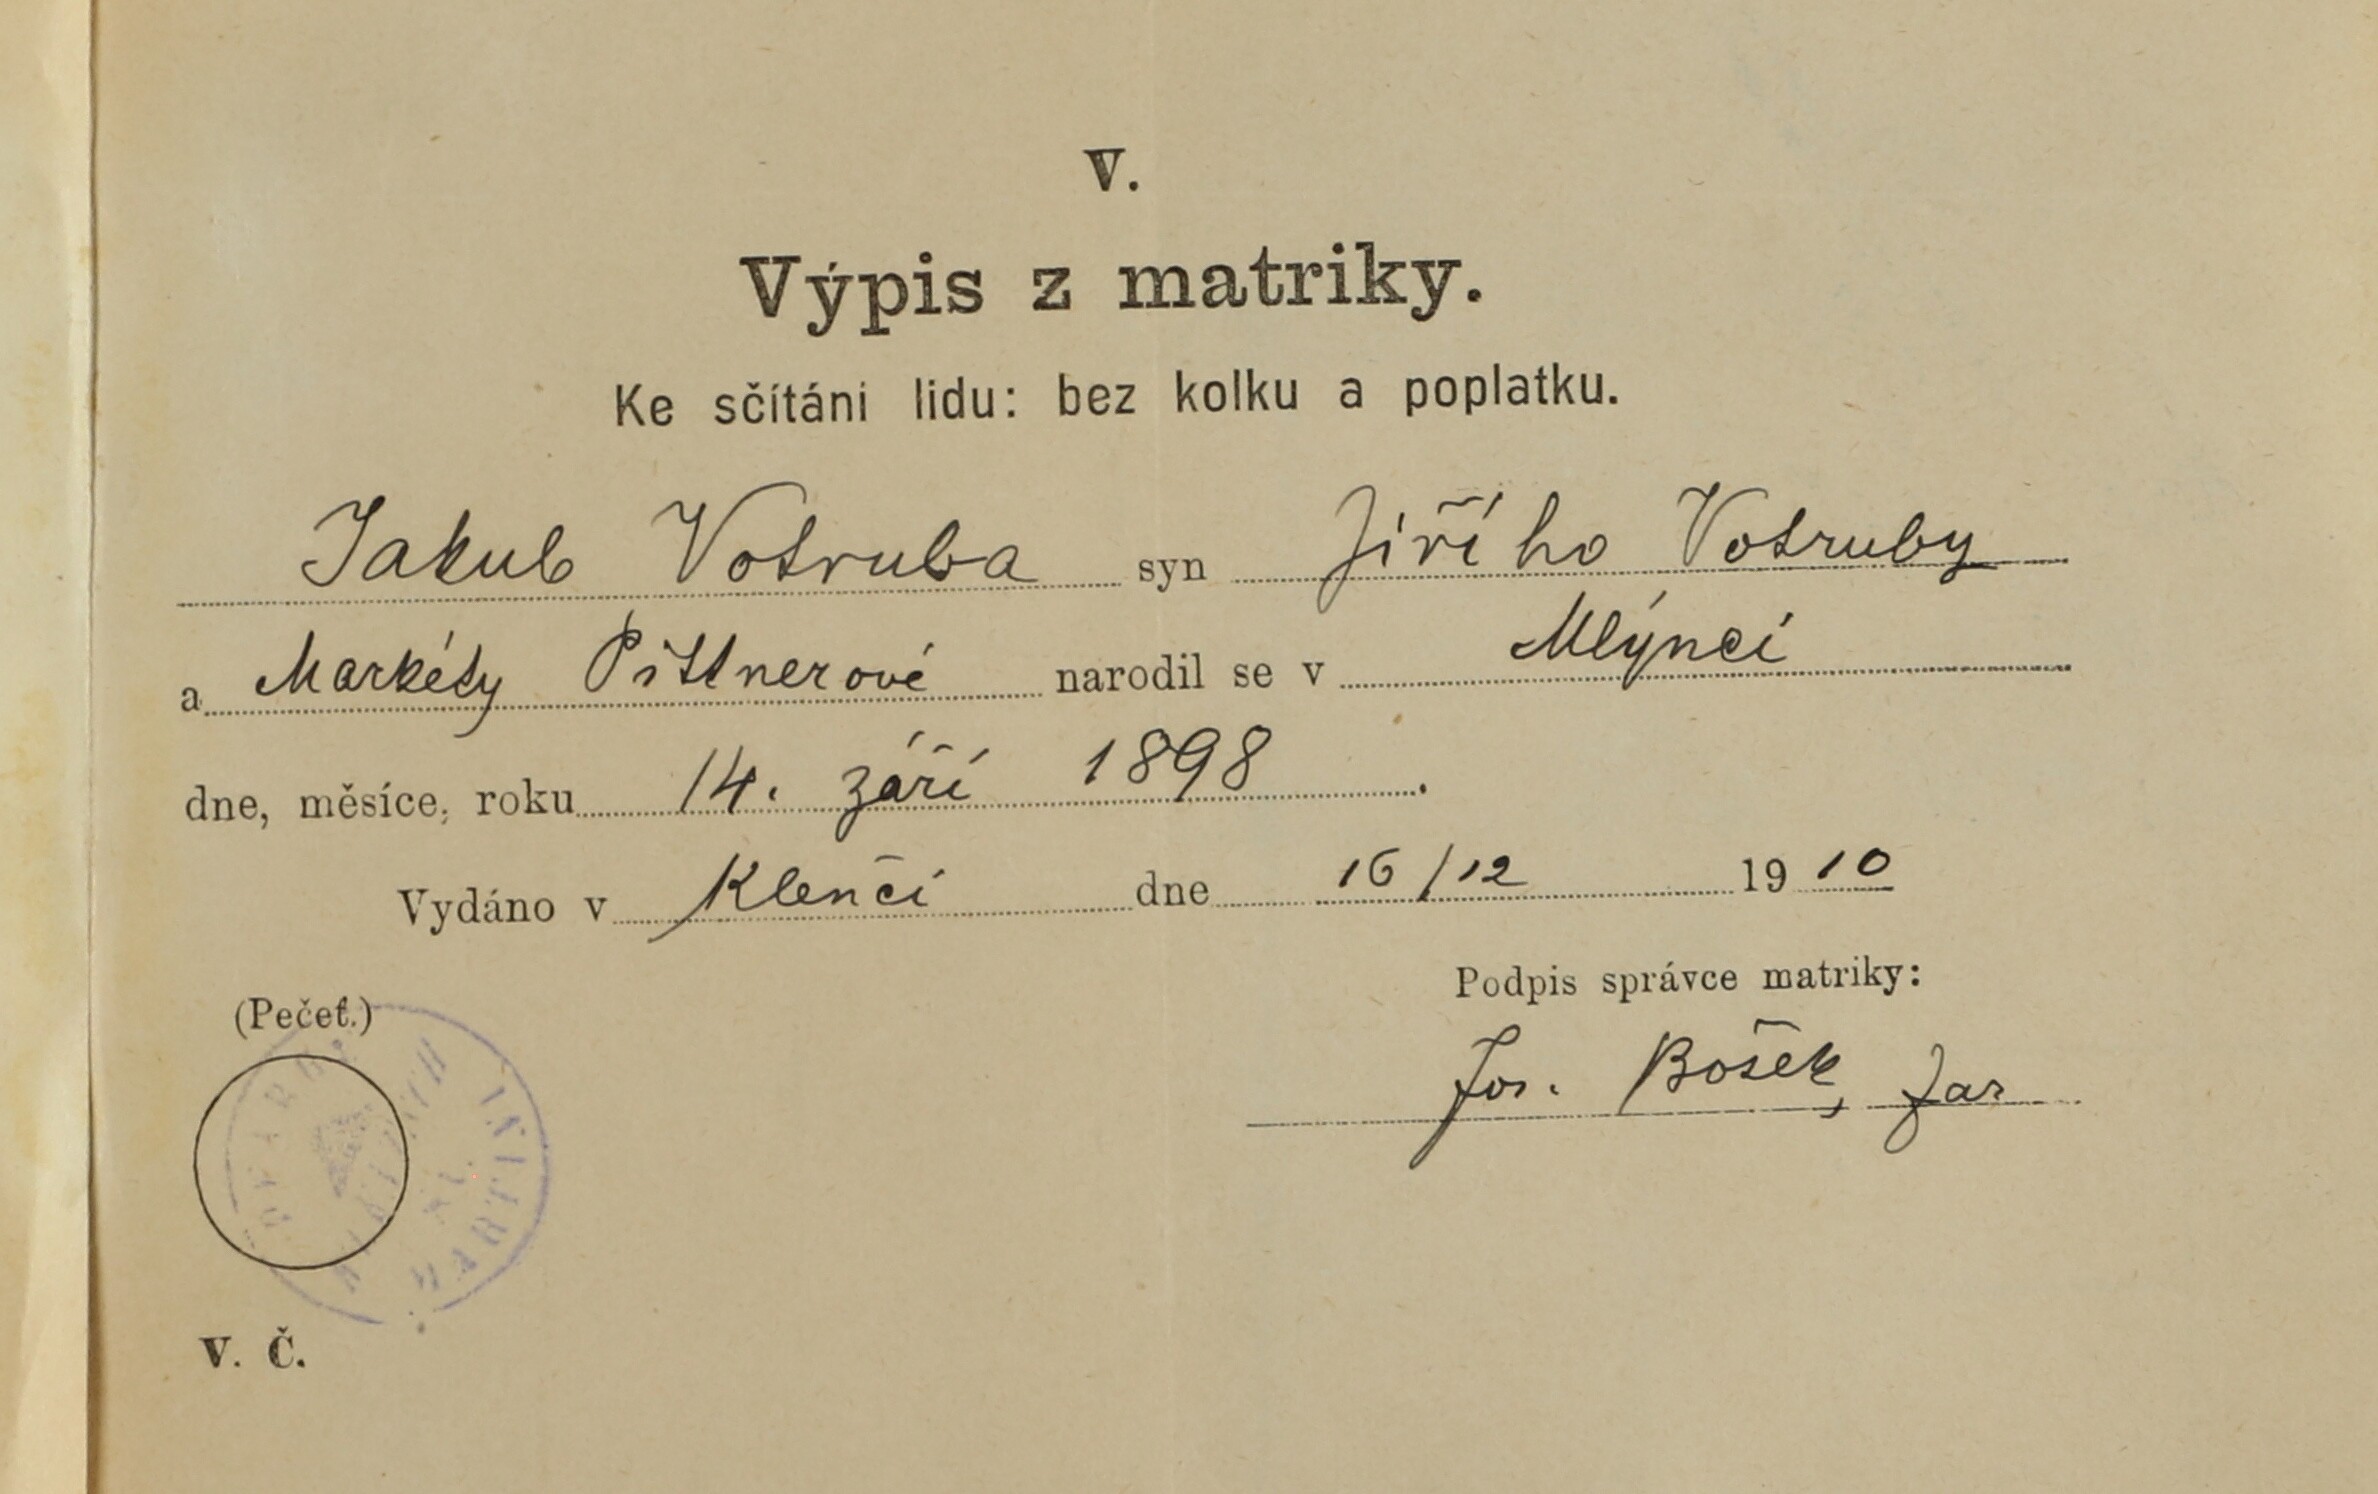 V.
Výpis z matriky.
Ke sčítáni lidu: bez kolku a poplatku.
Jakub Votruba syn Jiřího Votruby
a Markéty Pittnerové narodil se v Mlýnci
dne, měsíce, roku 14. září 1898.
Vydáno v Klenčí dne 16/12 1910
Podpis správce matriky:
(Pečeť.)
Jos. Bošek, far
V. Č.